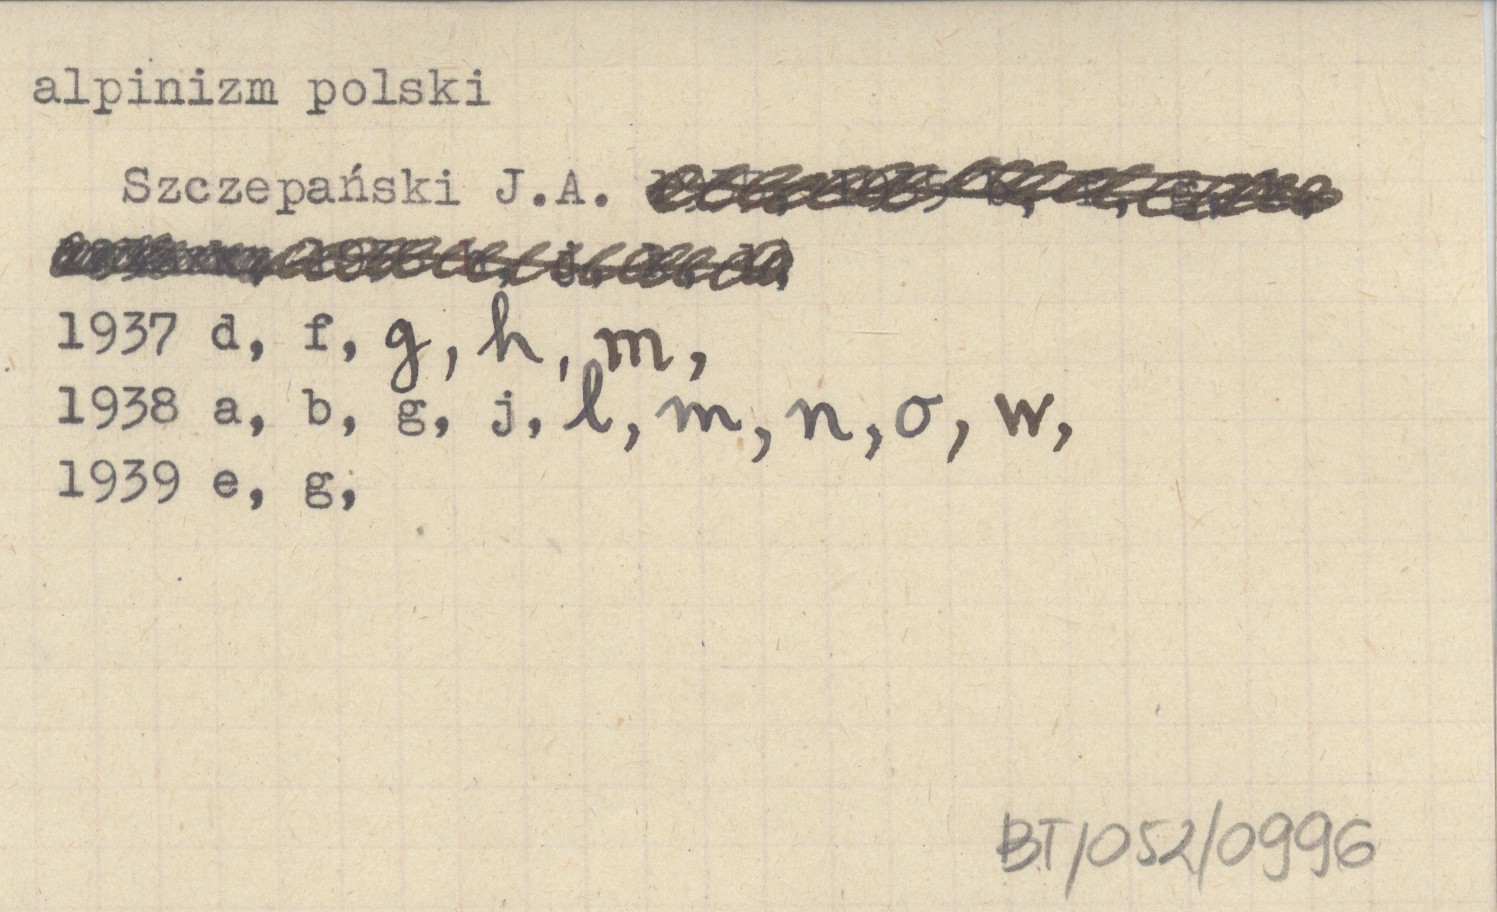 alpinizm polski
Szczepański J.A.
1937 d, f, g, h, m,
1938 a, b, g, j, l, m, n, o, w,
1939 e, g,
BT/052/0996